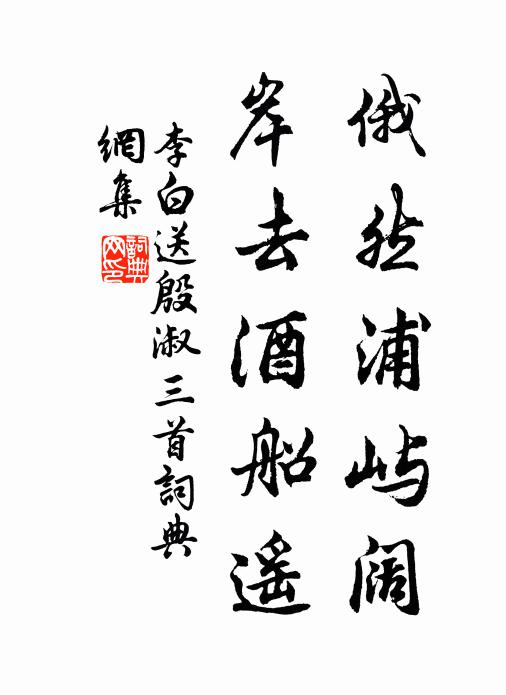 俄然浦屿阔
岸去酒船遥
李白送殷淑三首詞典
網集
詞典
网印